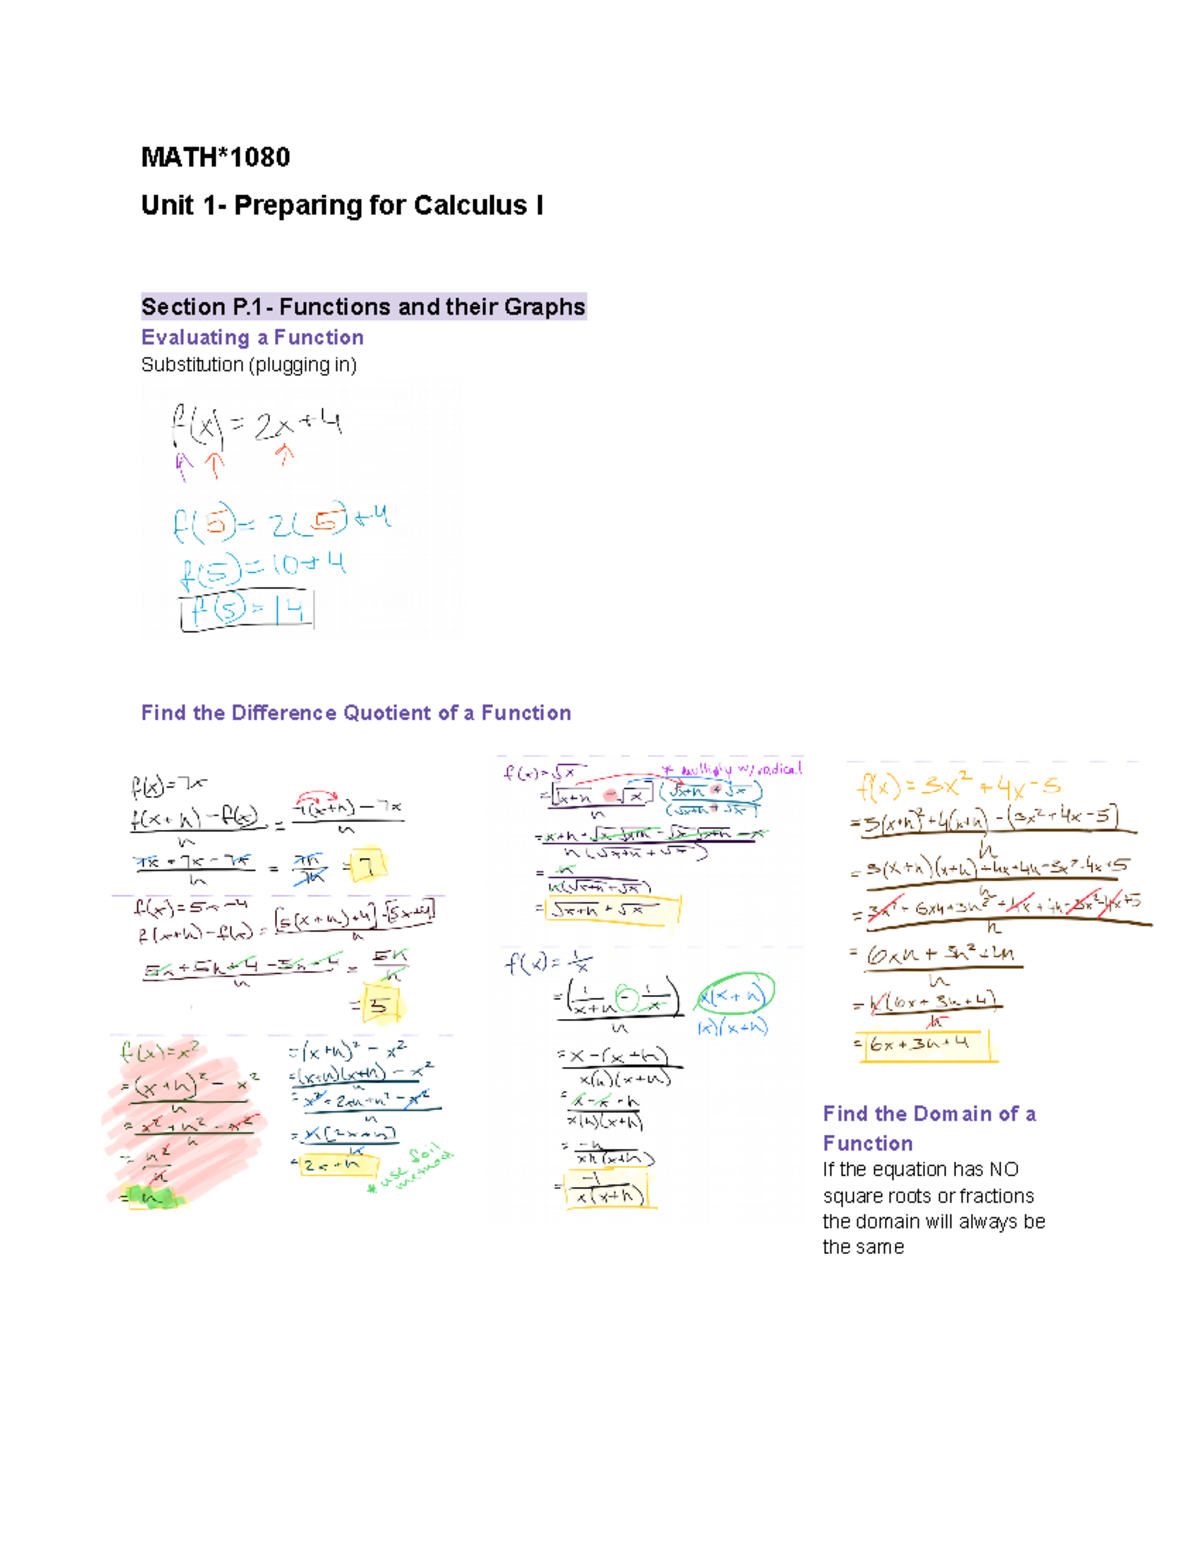 MATH*1080
Unit 1- Preparing for Calculus I
Section P.1- Functions and their Graphs
Evaluating a Function
Substitution (plugging in)
f(x) = 2x+4
f(5) = 2(5)+4
f(5) = 10+4
f(5) = 14
Find the Difference Quotient of a Function
f(x) = 7x
f(x+h) - f(x) / h = 7(x+h) - 7x / h
7x + 7x - 7x / h = 7h / 7h = 7
f(x) = 5x-4
f(x+h) - f(x) = [5(x+h)+4] - [5x+4] / h
5x + 5h + 4 - 5x - 4 / h = 5h / h
= 5
f(x) = x²
= (x+h)² - x² / h
= x² + h² - x² / h
= h² / h
= h
= (x+h)² - x²
= (x+h)(x+h) - x² / h
= x² + 2xh + h² - x² / h
= h[2x+h] / h
= 2x+h
* use foil method
f(x) = √x
* multiply w/ radical
= [√x+h - √x] / h (√x+h + √x) / (√x+h + √x)
= x+h + √x √x+h - √x √x+h - x / h(√x+h + √x)
= h / h(√x+h + √x)
= √x+h + √x
f(x) = 1/x
= (1/x+h - 1/x) / h x(x+h) / (x)(x+h)
= x - (x+h) / x(h)(x+h)
= x - x - h / x(h)(x+h)
= -h / xh(x+h)
= -1 / x(x+h)
f(x) = 3x² + 4x - 5
= 3(x+h)² + 4(x+h) - (3x² + 4x - 5) / h
= 3(x+h)(x+h) + 4x + 4h - 3x² - 4x + 5 / h
= 3x² + 6xh + 3h² + 4x + 4h - 3x² - 4x + 5 / h
= 6xh + 3h² + 4h / h
= h(6x + 3h + 4) / h
= 6x + 3h + 4
Find the Domain of a
Function
If the equation has NO
square roots or fractions
the domain will always be
the same